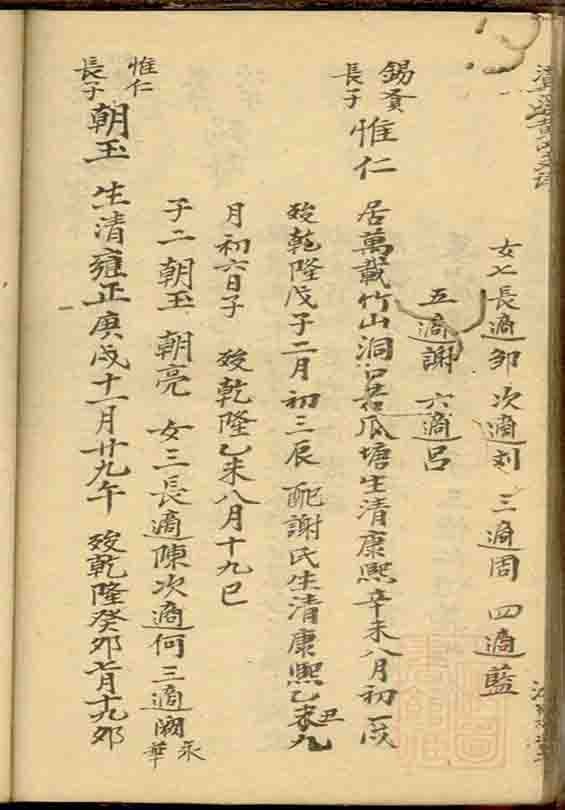 女七長適鄒 次適刘 三適周 四適藍
五適謝 六適呂
錫賚長子 惟仁 居萬載竹山洞 瓜塘生清康熙辛未八月初一戌
歿乾隆戊子二月初三辰 配謝氏生清康熙乙丑九
月初六日子 歿乾隆乙未八月十九巳
子二朝玉 朝亮 女三長適陳次適何三適 永華
惟仁長子 朝玉 生清雍正庚戌十一月廿九午 歿乾隆癸卯七月十九卯